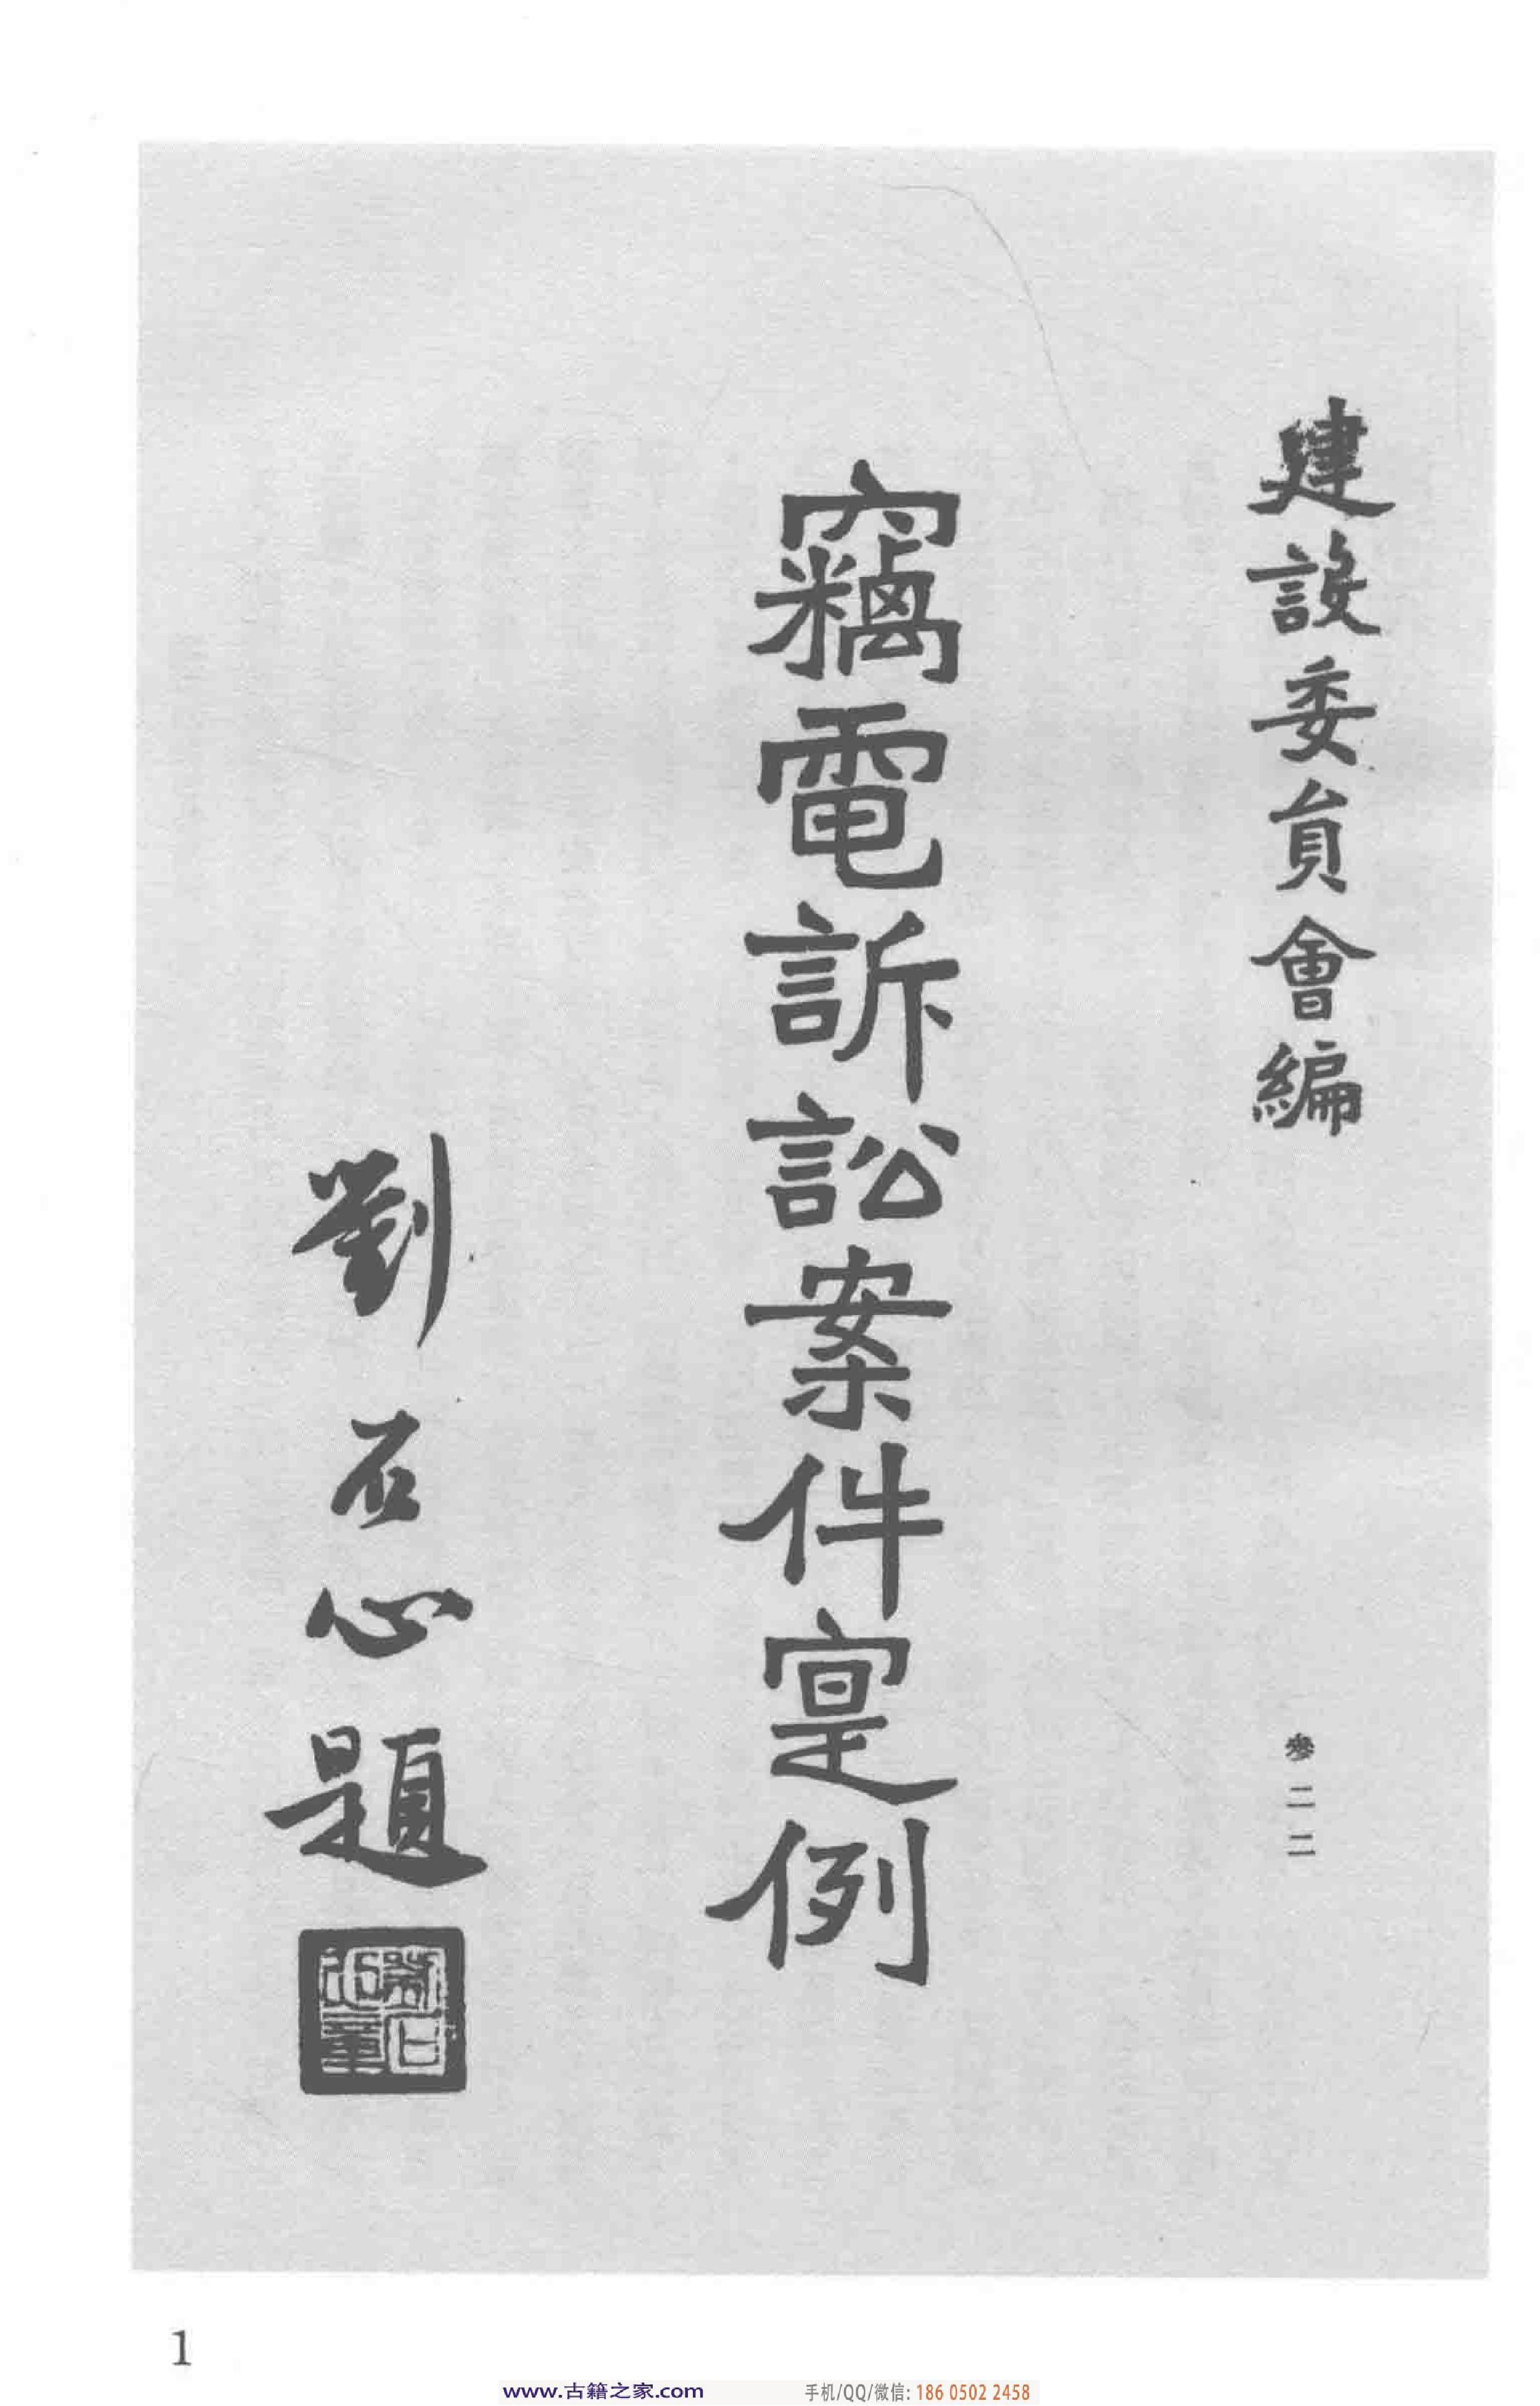 建設委員會編
參二二
竊電訴訟案件寔例
劉石心題
劉石心章
1
www.古籍之家.com
手机/QQ/微信: 186 0502 2458